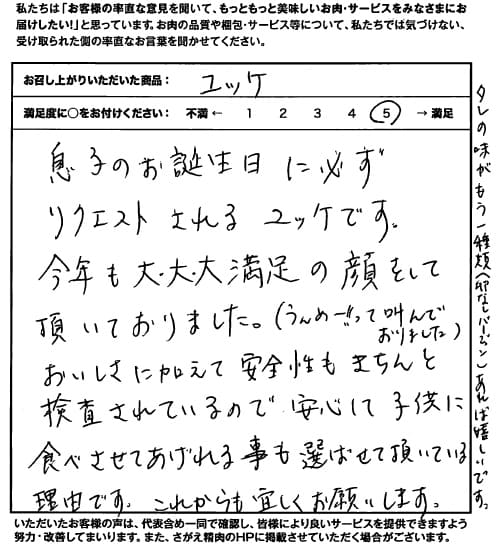 私たちは「お客様の率直な意見を聞いて、もっともっと美味しいお肉・サービスをみなさまにお
届けしたい!」と思っています。お肉の品質や梱包・サービス等について、私たちでは気づけない、
受け取られた側の率直なお言葉を聞かせてください。
お召し上がりいただいた商品: ユッケ
満足度に○をお付けください: 不満 ← 1 2 3 4 5 → 満足
息子のお誕生日に必ず
リクエストされるユッケです。
今年も大・大・大満足の顔をして
頂いておりました。(うんめ〜って叫んで
おりました)
おいしさに加えて安全性もきちんと
検査されているので安心して子供に
食べさせてあげれる事も選ばせて頂いている
理由です。これからも宜しくお願いします。
タレの味がもう一種類(卵なしバージョン)あれば嬉しいです。
いただいたお客様の声は、代表含め一同で確認し、皆様により良いサービスを提供できますよう
努力・改善してまいります。また、さがえ精肉のHPに掲載させていただく場合がございます。